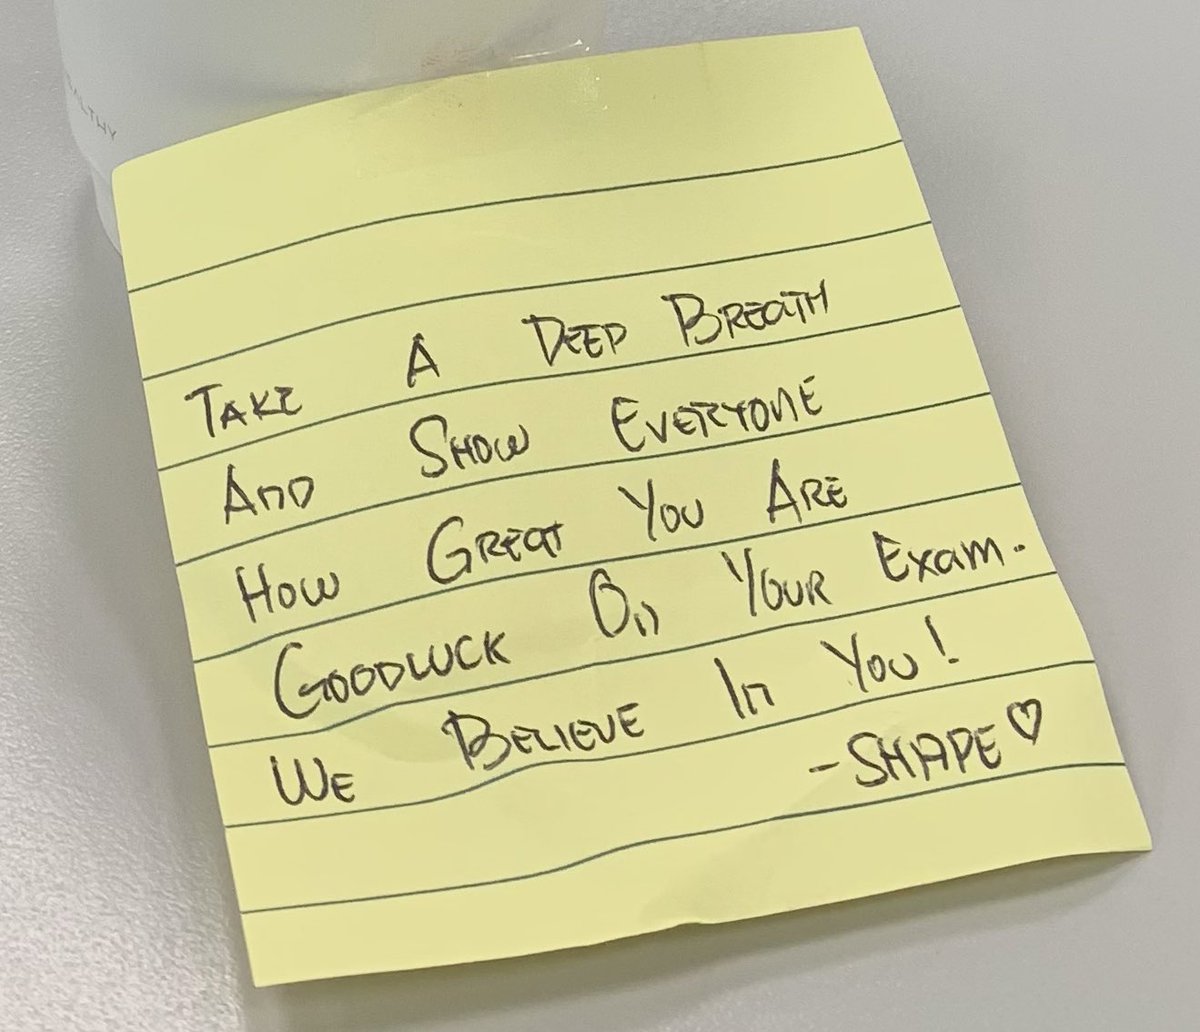 ALTHY
TAKE A DEEP BREATH
AND SHOW EVERYONE
HOW GREAT YOU ARE
GOODLUCK ON YOUR EXAM.
WE BELIEVE IN YOU!
-SHAPE♡